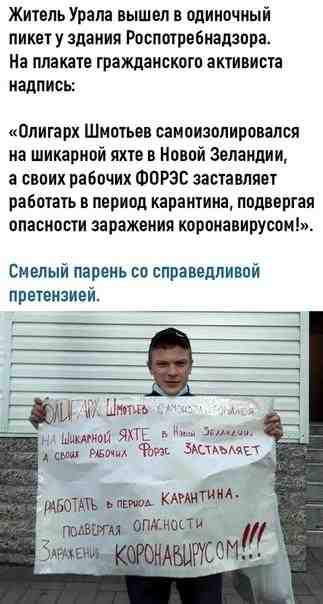 Житель Урала вышел в одиночный
пикет у здания Роспотребнадзора.
На плакате гражданского активиста
надпись:
«Олигарх Шмотьев самоизолировался
на шикарной яхте в Новой Зеландии,
а своих рабочих ФОРЭС заставляет
работать в период карантина, подвергая
опасности заражения коронавирусом!».
Смелый парень со справедливой
претензией.
ОЛИГАРХ Шмотьев САМОИЗОЛИРОВАЛСЯ
НА ШИКАРНОЙ ЯХТЕ в Новой Зеландии,
А своих РАБОЧИХ Форэс ЗАСТАВЛЯЕТ
РАБОТАТЬ в период КАРАНТИНА.
ПОДВЕРГАЯ ОПАСНОСТИ
ЗАРАЖЕНИЯ КОРОНАВИРУСОМ!!!